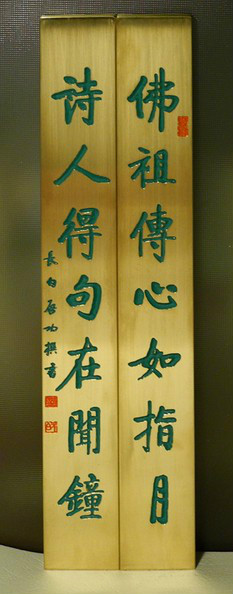 佛祖傳心如指月
诗人得句在聞鐘
長白启功撰书